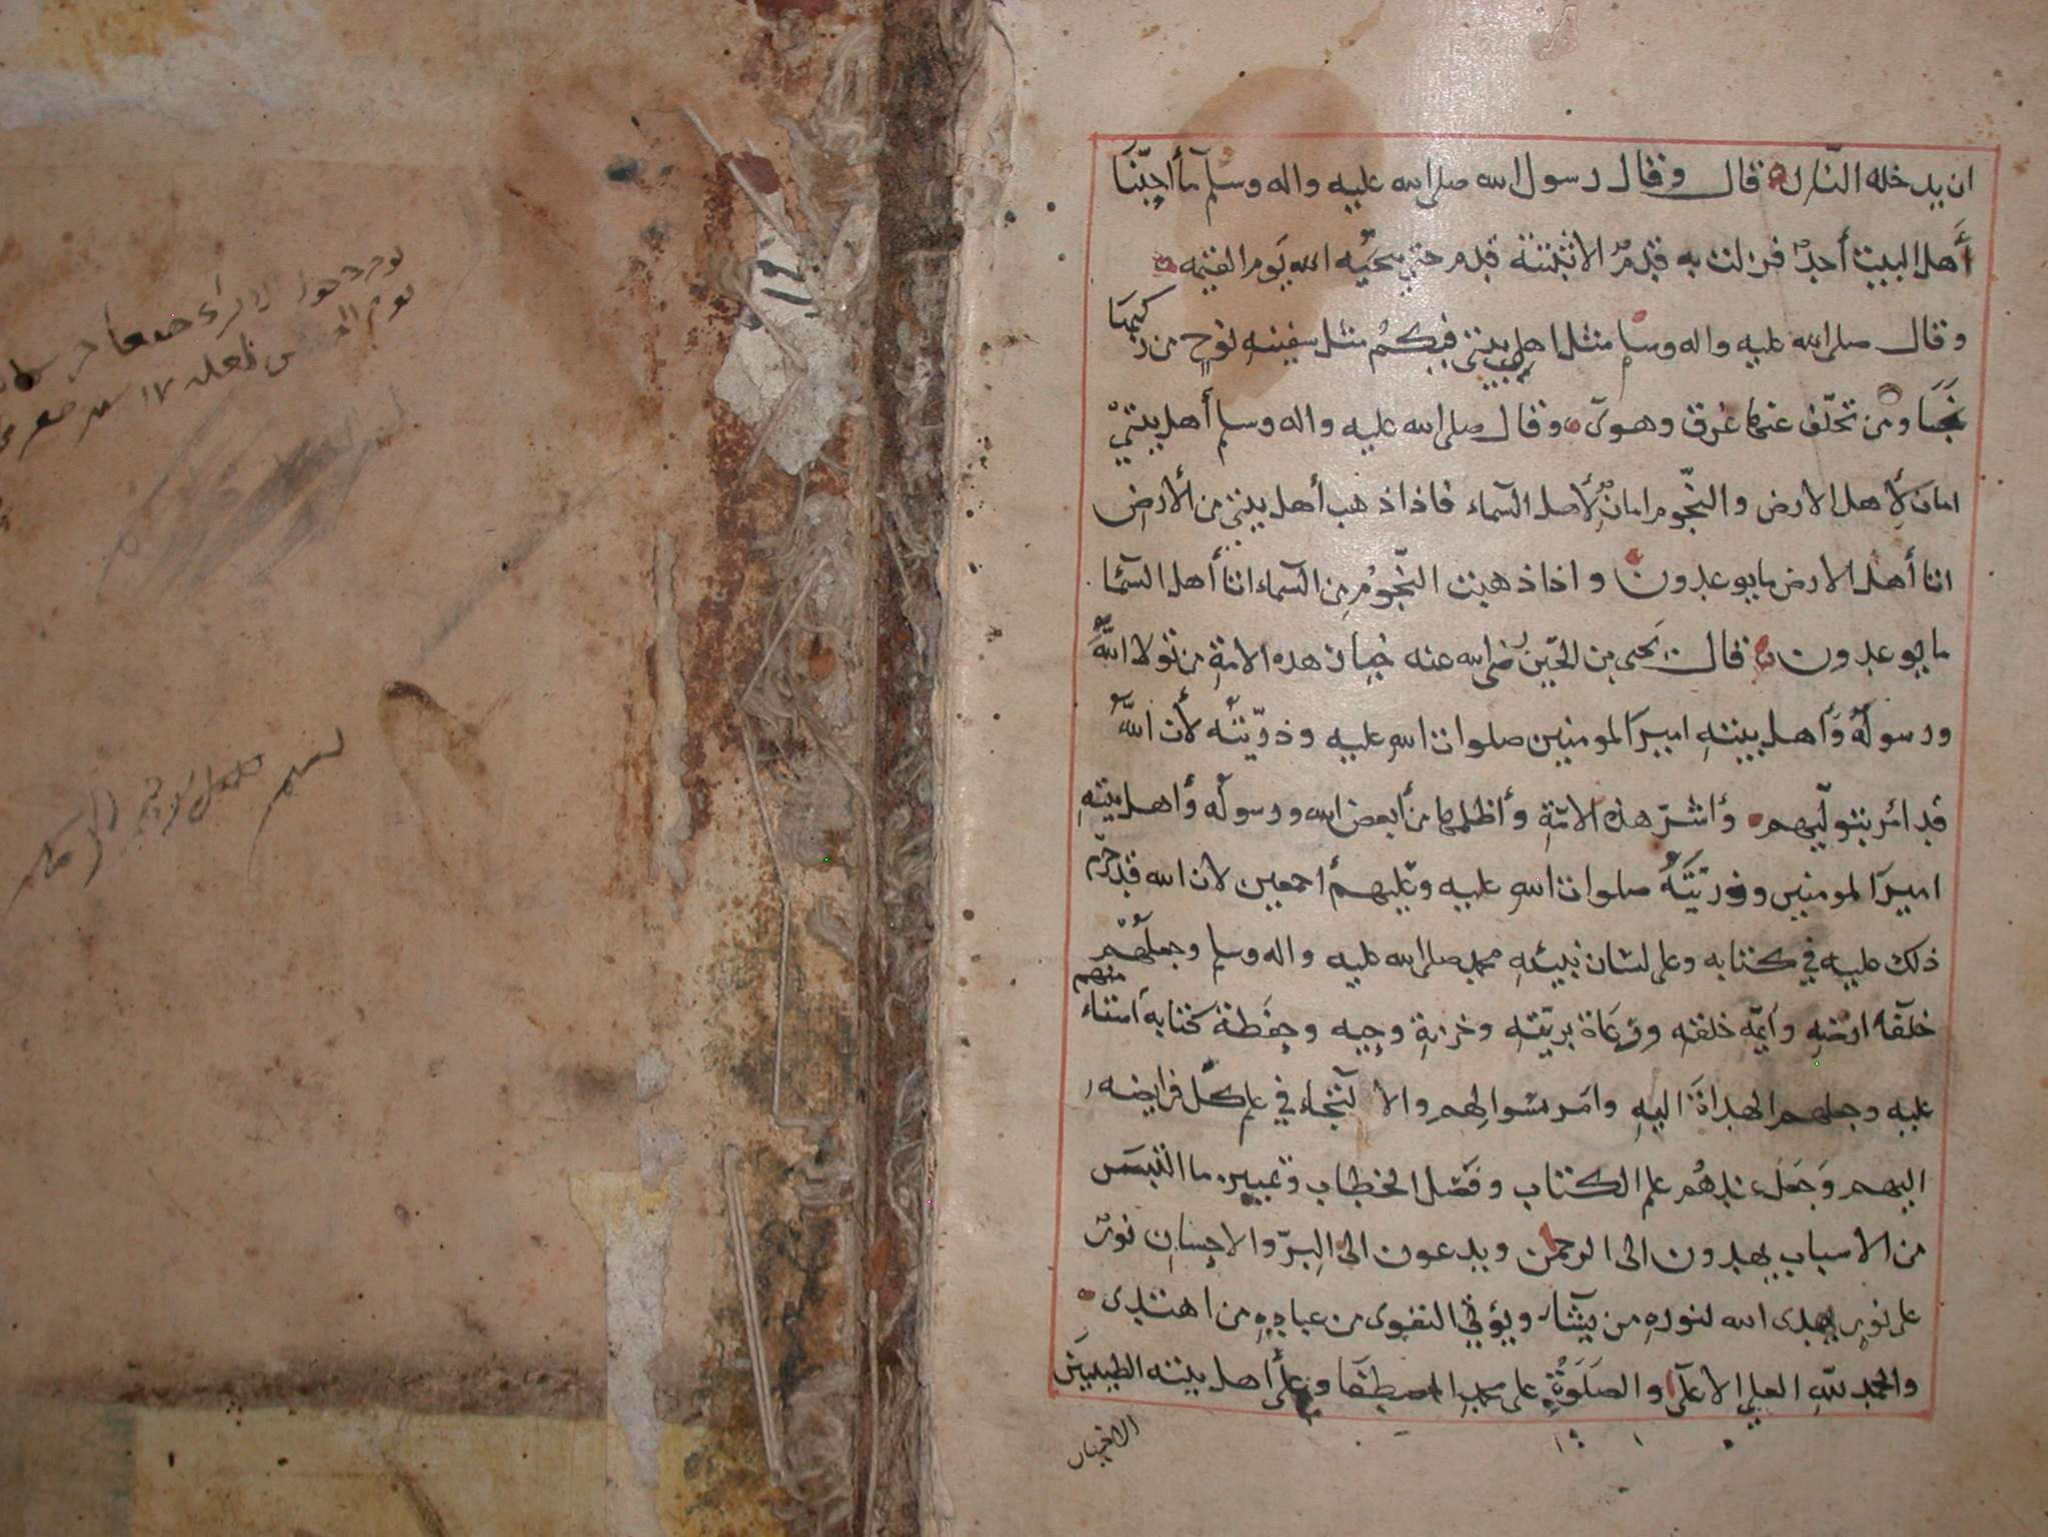 ان يدخله النار قال وقال رسول الله صلى الله عليه واله وسلم ما أحبّنا
أهل البيت أحد فزلت به قدم الا ثبتته قدم حتى ينجيه الله يوم القيمه
وقال صلى الله عليه واله وسلم مثل اهل بيتي فيكم مثل سفينه نوح من ركبها
نجا ومن تخلّف عنها غرق وهوى وقال صلى الله عليه واله وسلم أهل بيتي
امان لأهل الارض والنجوم امان لأهل السماء فاذا ذهب أهل بيتي من الأرض
اتا أهل الارض ما يوعدون واذا ذهبت النجوم من السماء اتا أهل السما
ما يوعدون قال يحيى بن الحسين رضي الله عنه خيار هذه الامة من تولا الله
ورسوله وأهل بيته امير المومنين صلوات الله عليه وذريّته لأن الله
قد امر بتولّيهم وأشرّ هذه الامّة وأظلمها من أبغض الله ورسوله وأهل بيته
امير المومنين وذريّته صلوات الله عليه وعليهم أجمعين لان الله قد حرّم
ذلك عليه في كتابه وعلى لسان نبيئه محمد صلى الله عليه واله وسلم وجعلهم
خلفآ ارضه وايمّه خلقه ورعاة بريّته وخزنة وحيه وحفظة كتابه امناء منهم
عليه وجعلهم الهداة اليه وامر بسوالهم والا لتجاء في علم كلّ فرايضه
اليهم وجعل عندهم علم الكتاب وفصل الخطاب وتمييز ما التبس
من الاسباب يهدون الى الرحمن ويدعون الى البرّ والاحسان نور
على نور يهدى الله لنوره من يشآ ويؤتي التقوى من عباده من اهتدى
والحمد لله العلي الاعلى والصلوة على محمد المصطفا وعلى أهل بيته الطيبين
الاخيار